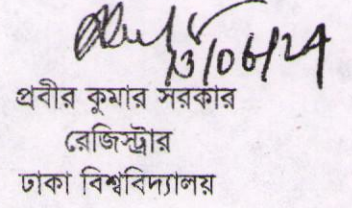 13/06/24
প্রবীর কুমার সরকার
রেজিস্ট্রার
ঢাকা বিশ্ববিদ্যালয়